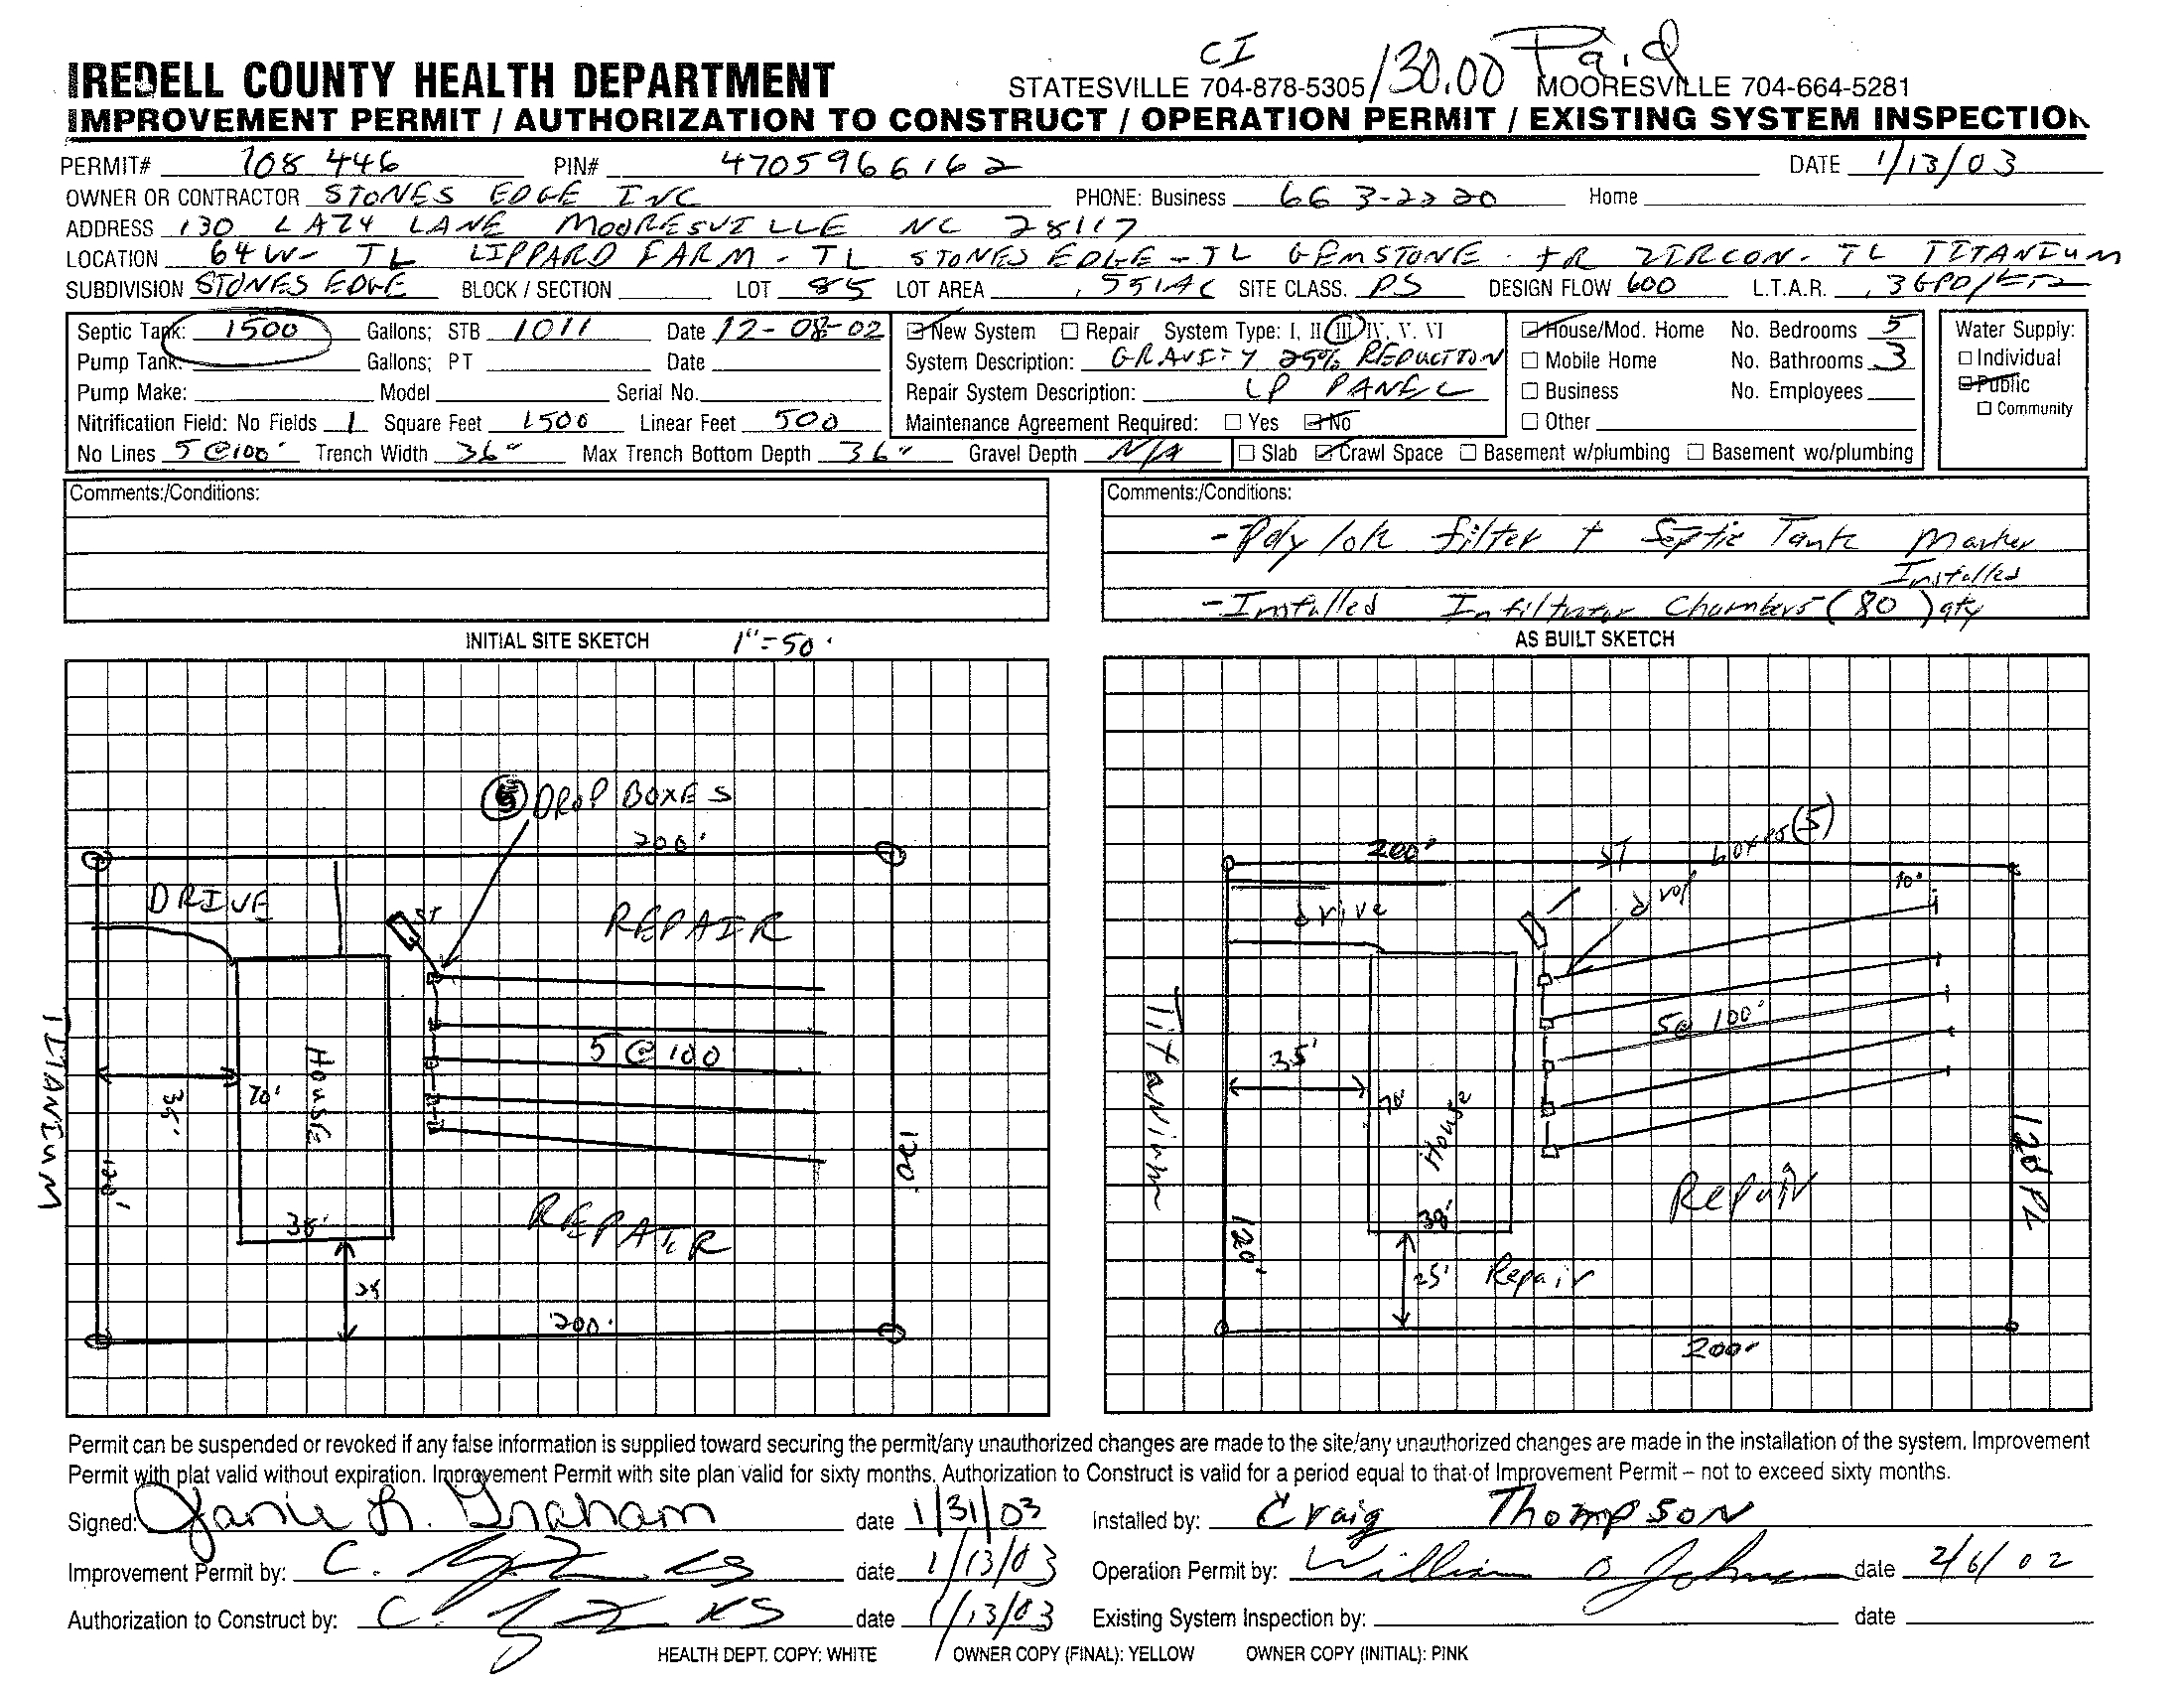 CI
130.00 Paid
IREDELL COUNTY HEALTH DEPARTMENT STATESVILLE 704-878-5305 MOORESVILLE 704-664-5281
IMPROVEMENT PERMIT / AUTHORIZATION TO CONSTRUCT / OPERATION PERMIT / EXISTING SYSTEM INSPECTION
PERMIT# 108 446 PIN# 4705966162 DATE 1/13/03
OWNER OR CONTRACTOR STONES EDGE INC PHONE: Business 663-2220 Home
ADDRESS 130 LAZY LANE MOORESVILLE NC 28117
LOCATION 64W- TL LIPPARD FARM - TL STONES EDGE - TL GEMSTONE - TR ZIRCON - TL TITANIUM
SUBDIVISION STONES EDGE BLOCK / SECTION LOT 85 LOT AREA .551AC SITE CLASS. PS DESIGN FLOW 600 L.T.A.R. .3GPD/FT2
Septic Tank: 1500 Gallons; STB 1011 Date 12-08-02 New System Repair System Type: I, II III IV, V. VI House/Mod. Home No. Bedrooms 5 Water Supply:
Pump Tank: Gallons; PT Date System Description: GRAVITY 25% REDUCTION Mobile Home No. Bathrooms 3 Individual
Pump Make: Model Serial No. Repair System Description: LP PANEL Business No. Employees Public
Nitrification Field: No Fields 1 Square Feet 1500 Linear Feet 500 Maintenance Agreement Required: Yes No Other Community
No Lines 5@100' Trench Width 36" Max Trench Bottom Depth 36" Gravel Depth N/A Slab Crawl Space Basement w/plumbing Basement wo/plumbing
Comments:/Conditions:
Comments:/Conditions:
- Poly lok filter + Septic Tank Marker
Installed
- Installed Infiltrator Chambers (80) qty
INITIAL SITE SKETCH 1"=50'
5 DROP BOXES
200'
DRIVE
ST
REPAIR
5@100
HOUSE
70'
35'
TITANIUM
120'
120'
38'
REPAIR
25
200'
AS BUILT SKETCH
200'
ST
drop boxes (5)
10'
drive
5@ 100'
35'
70'
House
Titanium
120'
120' PL
38'
Repair
25'
Repair
200'
Permit can be suspended or revoked if any false information is supplied toward securing the permit/any unauthorized changes are made to the site/any unauthorized changes are made in the installation of the system. Improvement
Permit with plat valid without expiration. Improvement Permit with site plan valid for sixty months. Authorization to Construct is valid for a period equal to that of Improvement Permit – not to exceed sixty months.
Signed: Janie L. Graham date 1/31/03 Installed by: Craig Thompson
Improvement Permit by: C. date 1/13/03 Operation Permit by: William O Johnson date 2/6/02
Authorization to Construct by: C. date 1/13/03 Existing System Inspection by: date
HEALTH DEPT. COPY: WHITE OWNER COPY (FINAL): YELLOW OWNER COPY (INITIAL): PINK